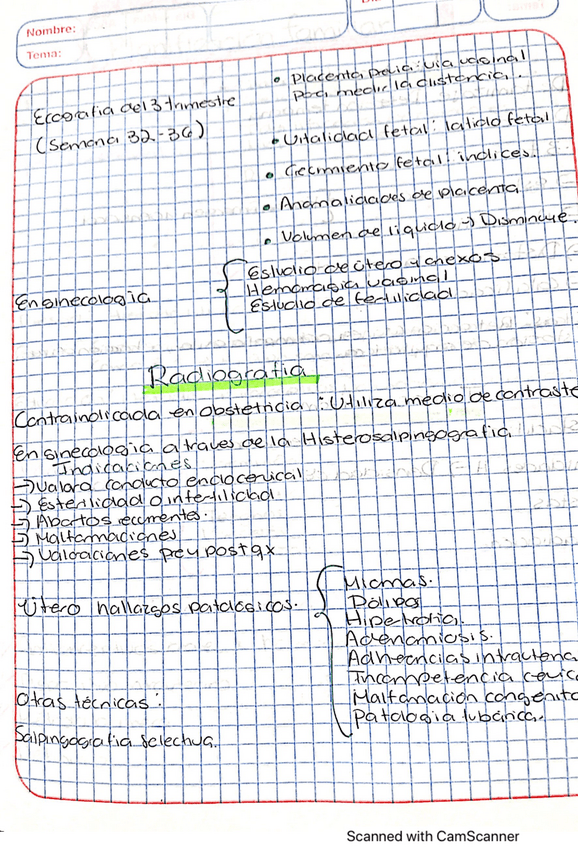 Nombre:
Tema:
• Placenta previa: via vaginal
para medir la distancia.
Ecografia del 3 trimestre
(Semana 32-36)
• Vitalidad fetal: latido fetal
• Crecimiento fetal: indices.
• Anomalidades de placenta
• Volumen de liquido → Disminuye.
En ginecologia
Estudio de útero y anexos
Hemorragia vaginal
Estudio de fertilidad
Radiografia
Contraindicada en obstetricia : Utiliza medio de contraste
En ginecologia a traves de la Histerosalpingografia
Indicaciones
→ Valora conducto endocervical
→ Esterilidad o infertilidad
→ Abortos recurrentes.
→ Malformaciones
→ Valoraciones pre y postqx
Útero hallazgos patologicos.
Miomas.
Pólipos
Hipertrofia.
Adenomiosis.
Adherencias intrauterina
Incompetencia cervic
Malformación congenita
Patologia tubarica.
Otras técnicas:
Salpingografia selectiva.
Scanned with CamScanner